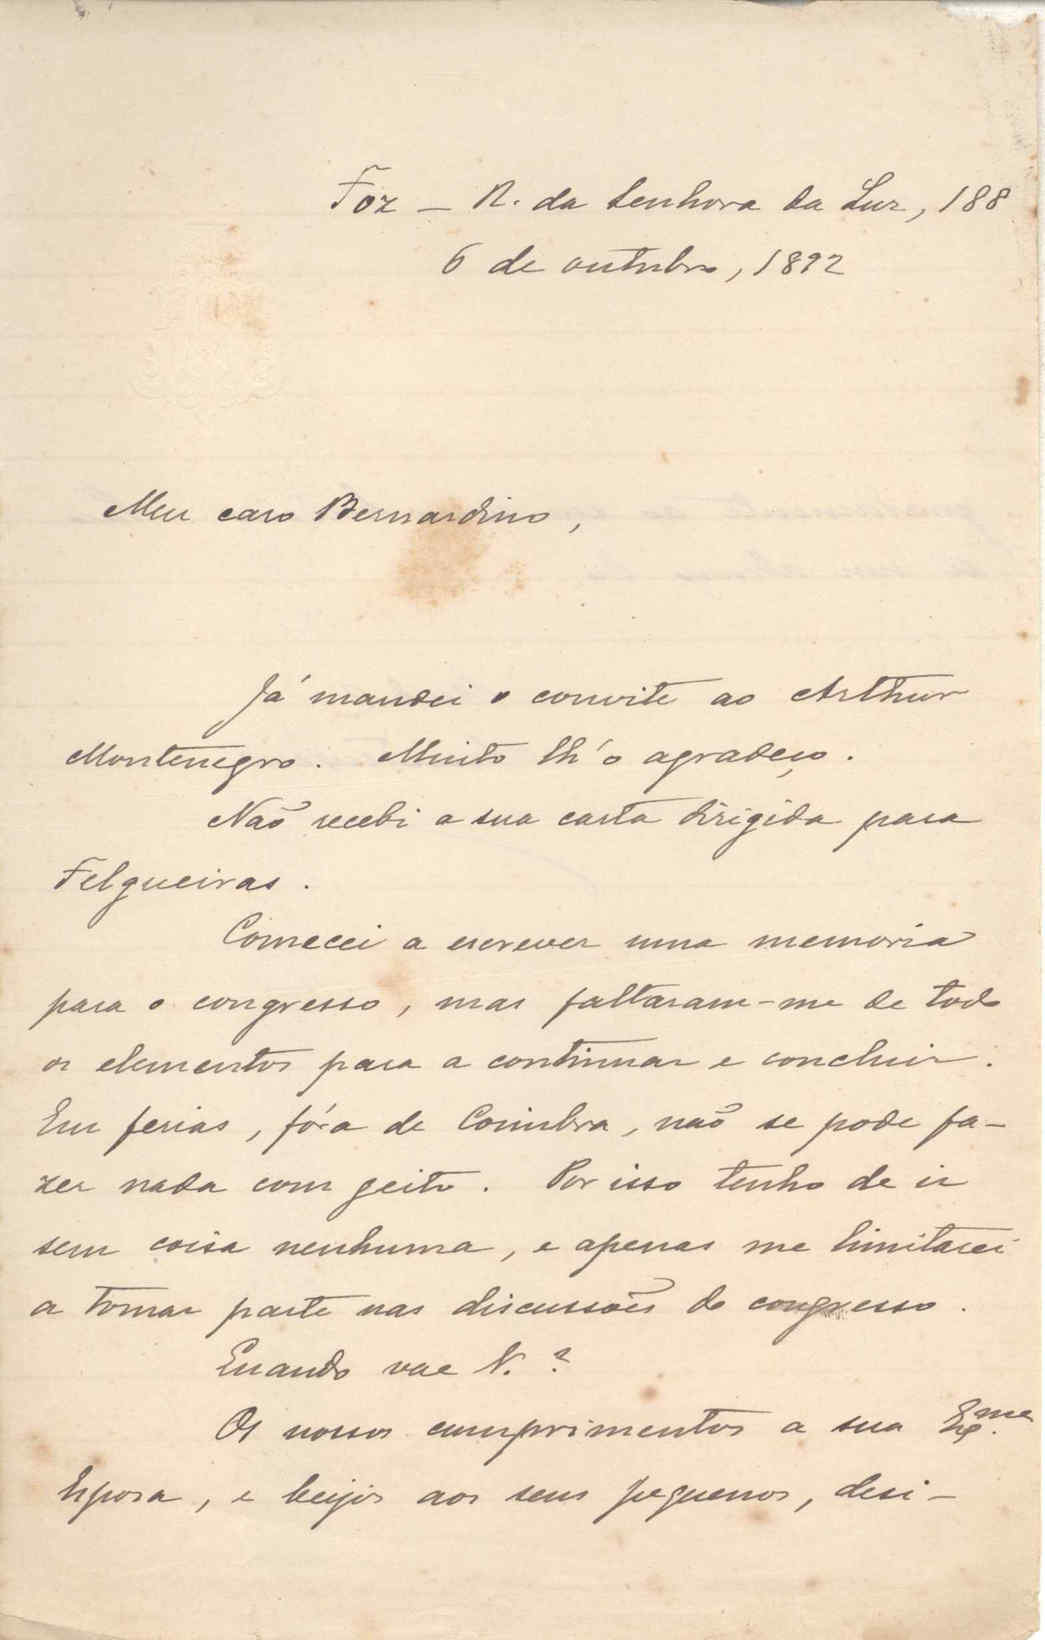 Foz – R. da Senhora da Luz, 188
6 de outubro, 1892
Meu caro Bernardino,
Já mandei o convite ao Arthur
Montenegro. Muito lh'o agradeço.
Não recebi a sua carta dirigida para
Felgueiras.
Comecei a escrever uma memoria
para o congresso, mas faltaram-me de todo
os elementos para a continuar e concluir.
Em ferias, fóra de Coimbra, não se pode fa-
zer nada com geito. Por isso tenho de ir
sem coisa nenhuma, e apenas me limitarei
a tomar parte nas discussões do congresso.
Quando vae V.?
Os nossos cumprimentos a sua Exma.
Esposa, e beijos aos seus pequenos, desi-